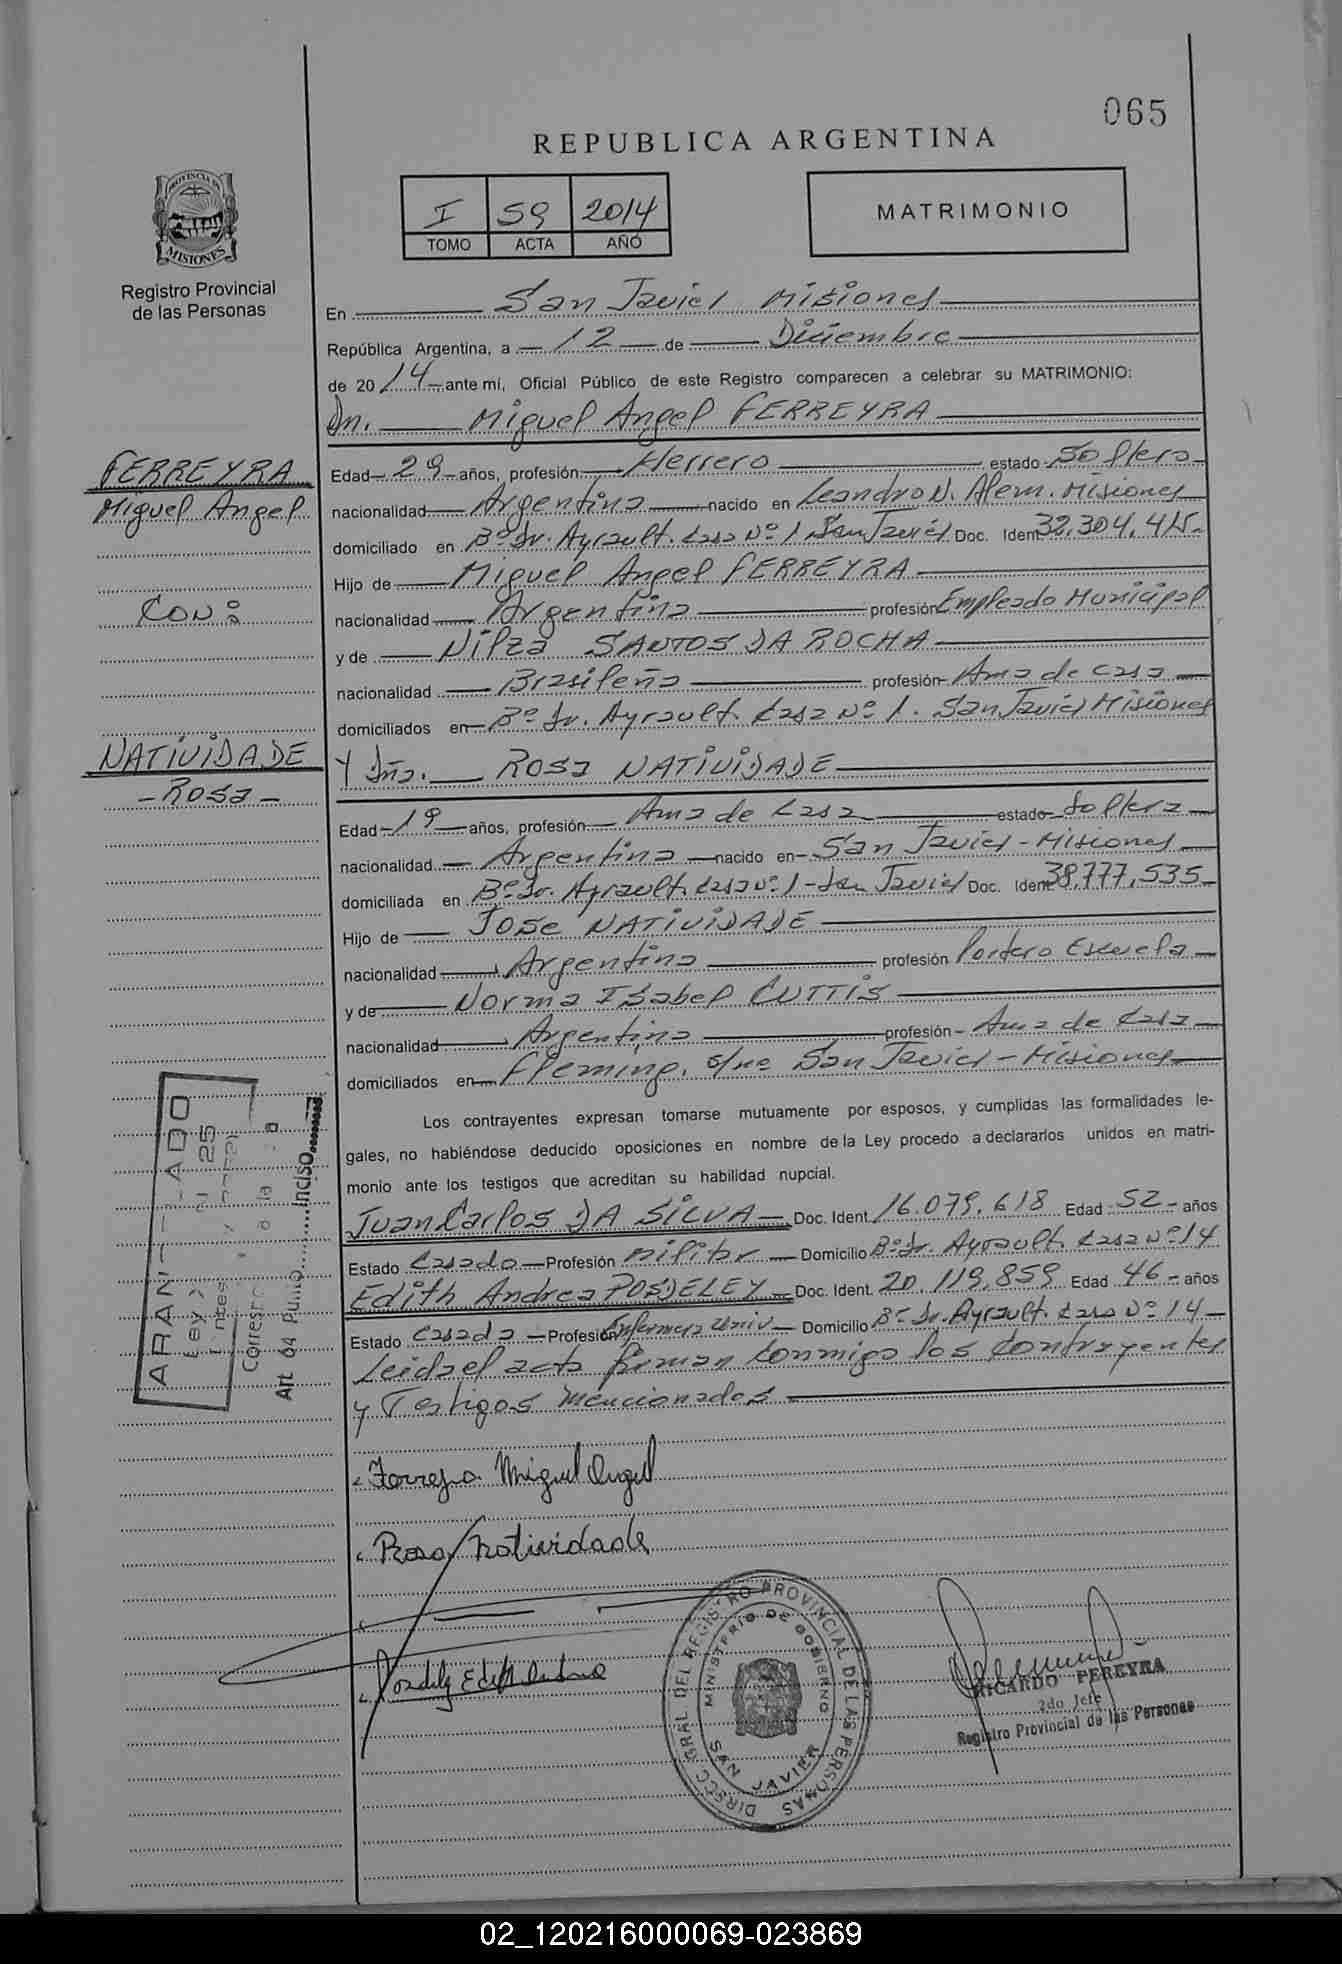 065
REPUBLICA ARGENTINA
PROVINCIA DE
MISIONES
Registro Provincial
de las Personas
I 59 2014
TOMO ACTA AÑO
MATRIMONIO
En San Javier Misiones
República Argentina, a 12 de Diciembre
de 2014 ante mí, Oficial Público de este Registro comparecen a celebrar su MATRIMONIO:
Dn. Miguel Angel FERREYRA
FERREYRA
Miguel Angel
Edad 29 años, profesión Herrero estado Soltero
nacionalidad Argentino nacido en Leandro N. Alem. Misiones
domiciliado en Bº Dr. Ayrault. Casa Nº 1 San Javier Doc. Ident 32.304.415
Hijo de Miguel Angel FERREYRA
CON:
nacionalidad Argentina profesión Empleado Municipal
y de Nilza SANTOS DA ROCHA
nacionalidad Brasileña profesión Ama de casa
domiciliados en Bº Dr. Ayrault. Casa Nº 1. San Javier Misiones
NATIVIDADE
- Rosa -
Y Dña. Rosa NATIVIDADE
Edad 19 años, profesión Ama de Casa estado Soltera
nacionalidad Argentina nacido en San Javier - Misiones
domiciliada en Bº Dr. Ayrault. Casa Nº 1 - San Javier Doc. Ident 38.777.535
Hijo de José NATIVIDADE
nacionalidad Argentino profesión Portero Escuela
y de Norma Isabel CUTTIS
nacionalidad Argentina profesión Ama de Casa
domiciliados en Fleming. s/nº San Javier - Misiones
Los contrayentes expresan tomarse mutuamente por esposos, y cumplidas las formalidades le-
gales, no habiéndose deducido oposiciones en nombre de la Ley procedo a declararlos unidos en matri-
monio ante los testigos que acreditan su habilidad nupcial.
Juan Carlos DA SILVA Doc. Ident. 16.079.618 Edad 52 años
Estado Casado Profesión Militar Domicilio Bº Dr. Ayrault. Casa Nº 14
Edith Andrea POSDELEY Doc. Ident. 20.119.859 Edad 46 años
Estado Casada Profesión Enfermera Univ Domicilio Bº Dr. Ayrault. Casa Nº 14
Leida el acta firman conmigo los contrayentes
y Testigos mencionados
Art. 04 Punto Inciso
Ferreyra Miguel Angel
Rosa Natividade
DIRECC. GRAL. DEL REGISTRO PROVINCIAL DE LAS PERSONAS
MINISTERIO DE GOBIERNO
SAN JAVIER
RICARDO PEREYRA
2do Jefe
Registro Provincial de las Personas
02_120216000069-023869